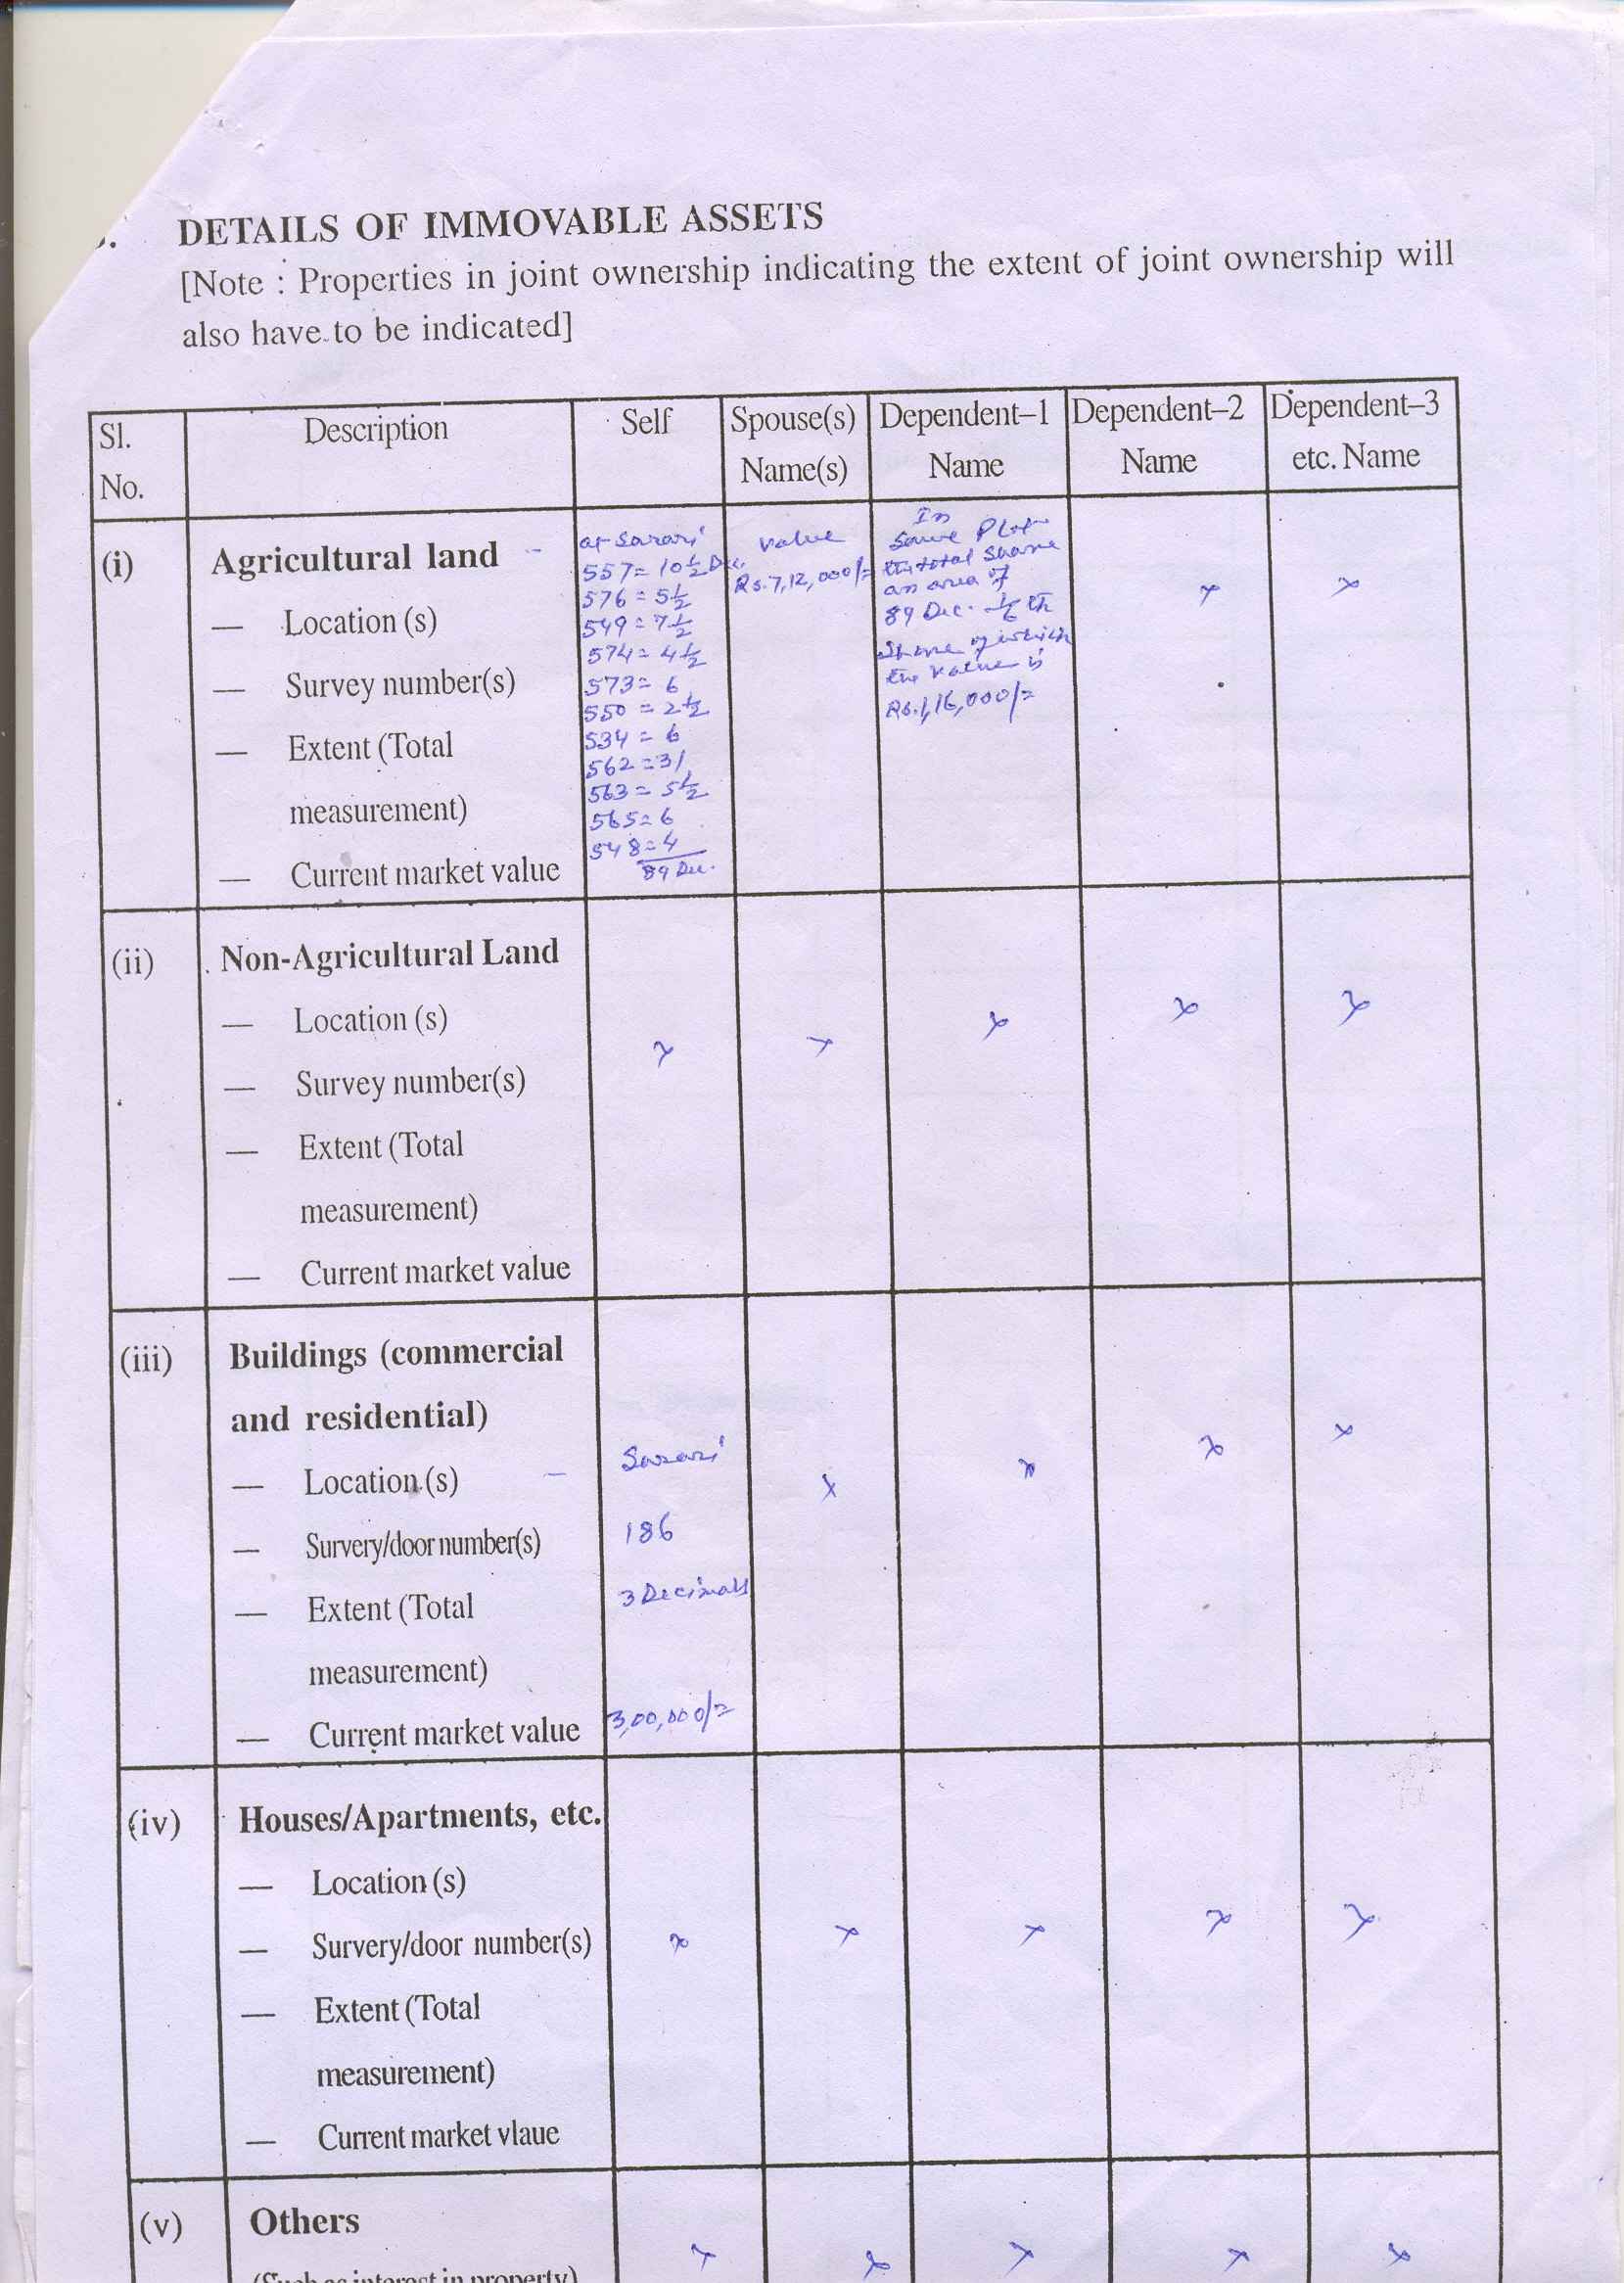 DETAILS OF IMMOVABLE ASSETS
[Note : Properties in joint ownership indicating the extent of joint ownership will
also have to be indicated]
Sl. No.
Description
Self
Spouse(s) Name(s)
Dependent–1 Name
Dependent–2 Name
Dependent–3 etc. Name
(i)
Agricultural land -
— Location (s)
— Survey number(s)
— Extent (Total
measurement)
— Current market value
at Sarari
557= 10 1/2 Dec.
576 = 5 1/2
549 = 7 1/2
574 = 4 1/2
573 = 6
550 = 2 1/2
534 = 6
562 = 31
563 = 5 1/2
565 = 6
548 = 4
89 Dec.
Value
Rs. 7,12,000/=
In
Same Plot
the total share
an area of
89 Dec. 1/6 th
Share of which
the value is
Rs. 1,16,000/=
x
x
(ii)
Non-Agricultural Land
— Location (s)
— Survey number(s)
— Extent (Total
measurement)
— Current market value
x
x
x
x
x
(iii)
Buildings (commercial
and residential)
— Location (s) -
— Survery/door number(s)
— Extent (Total
measurement)
— Current market value
Sarari
186
3 Decimals
3,00,000/=
x
x
x
x
(iv)
Houses/Apartments, etc.
— Location (s)
— Survery/door number(s)
— Extent (Total
measurement)
— Current market vlaue
x
x
x
x
x
(v)
Others
(Such as interest in property)
x
x
x
x
x